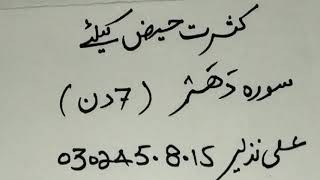 کثرت حیض کیلئے
سورہ دَھَر (7دن)
علی نذیر 0302450.8.15